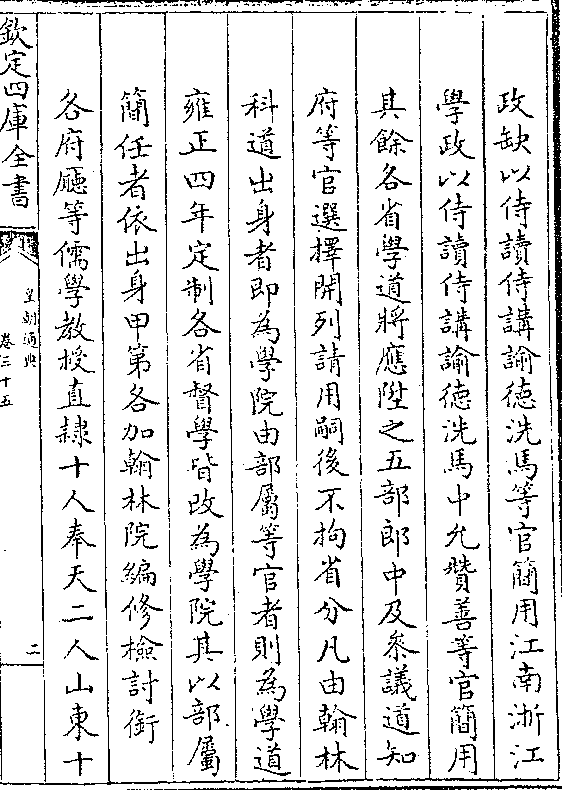 政缺以侍讀侍講諭德洗馬等官簡用江南浙江
學政以侍讀侍講諭德洗馬中允贊善等官簡用
其餘各省學道將應陞之五部郎中及叅議道知
府等官選擇開列請用嗣後不拘省分凡由翰林
科道出身者即為學院由部屬等官者則為學道
雍正四年定制各省督學皆改為學院其以部屬
簡任者依出身甲第各加翰林院編修檢討銜
各府廳等儒學教授直隸十人奉天二人山東十
欽定四庫全書
皇朝通典
卷三十五
二